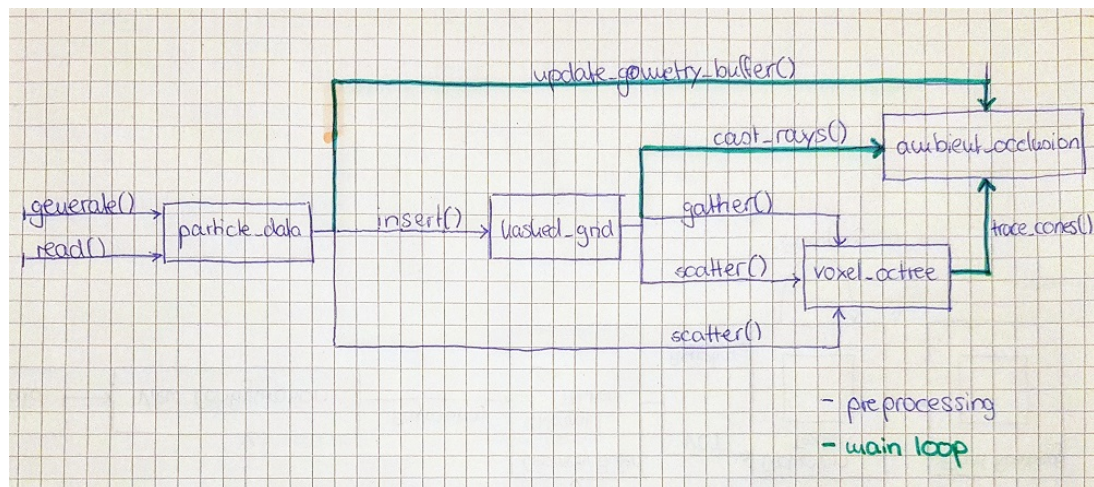 update_geometry_buffer()
cast_rays()
ambient_occlusion
generate()
read()
particle_data
insert()
hashed_grid
gather()
scatter()
voxel_octree
trace_cones()
scatter()
- preprocessing
- main loop